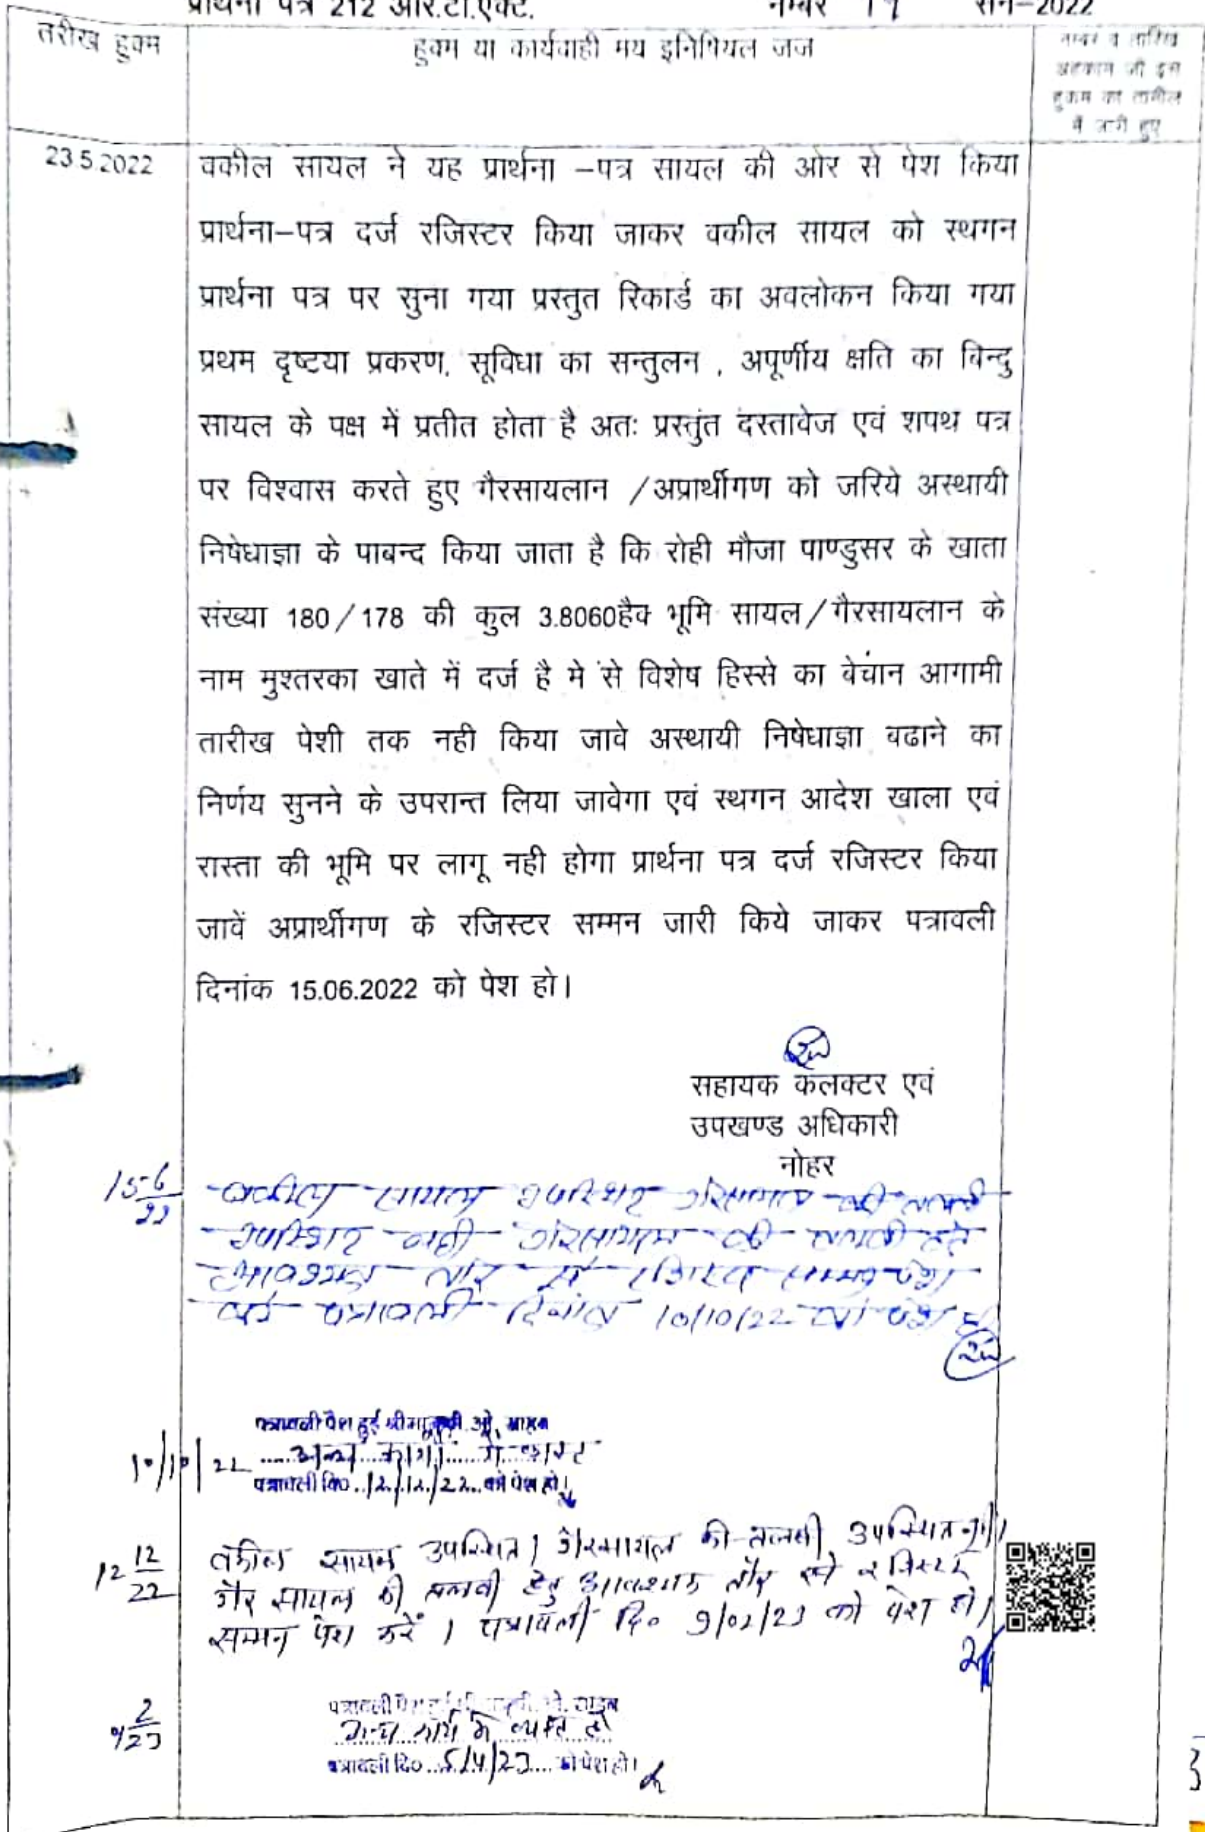 प्रार्थना पत्र 212 आर.टी.एक्ट. नम्बर 19 सन-2022
तरीख हुक्म
हुक्म या कार्यवाही मय इनिषियल जज
नम्बर व तारिख
अहकाम जो इस
हुकम का तामील
में जारी हुए
23.5.2022
वकील सायल ने यह प्रार्थना –पत्र सायल की ओर से पेश किया
प्रार्थना–पत्र दर्ज रजिस्टर किया जाकर वकील सायल को स्थगन
प्रार्थना पत्र पर सुना गया प्रस्तुत रिकार्ड का अवलोकन किया गया
प्रथम दृष्टया प्रकरण, सूविधा का सन्तुलन , अपूर्णीय क्षति का विन्दु
सायल के पक्ष में प्रतीत होता है अतः प्रस्तुंत दस्तावेज एवं शपथ पत्र
पर विश्वास करते हुए गैरसायलान /अप्रार्थीगण को जरिये अस्थायी
निषेधाज्ञा के पाबन्द किया जाता है कि रोही मौजा पाण्डुसर के खाता
संख्या 180/178 की कुल 3.8060हैक भूमि सायल/गैरसायलान के
नाम मुश्तरका खाते में दर्ज है मे से विशेष हिस्से का बेचान आगामी
तारीख पेशी तक नही किया जावे अस्थायी निषेधाज्ञा बढाने का
निर्णय सुनने के उपरान्त लिया जावेगा एवं स्थगन आदेश खाला एवं
रास्ता की भूमि पर लागू नही होगा प्रार्थना पत्र दर्ज रजिस्टर किया
जावें अप्रार्थीगण के रजिस्टर सम्मन जारी किये जाकर पत्रावली
दिनांक 15.06.2022 को पेश हो।
सहायक कलक्टर एवं
उपखण्ड अधिकारी
नोहर
15-6/22
वकील सायल उपस्थित गैरसायल की तलबी
उपस्थित नही गैरसायल की तलबी हेतु
आवश्यक तौर से रजिस्टर सम्मन पेश
करे पत्रावली दिनांक 10/10/22 को पेश हो
10/10/22
पत्रावली पेश हुई श्रीमान्
अन्य कार्यों में व्यस्त
पत्रावली दि० 12/12/22 को पेश हो।
12 12/22
वकील सायल उपस्थित। गैरसायल की तलबी उपस्थित नही।
गैर सायल की तलबी हेतु आवश्यक तौर से रजिस्टर
सम्मन पेश करें। पत्रावली दि० 9/02/23 को पेश हो।
9 2/23
अन्य कार्य मे व्यस्त है
पत्रावली दि० 5/4/23 को पेश हो।